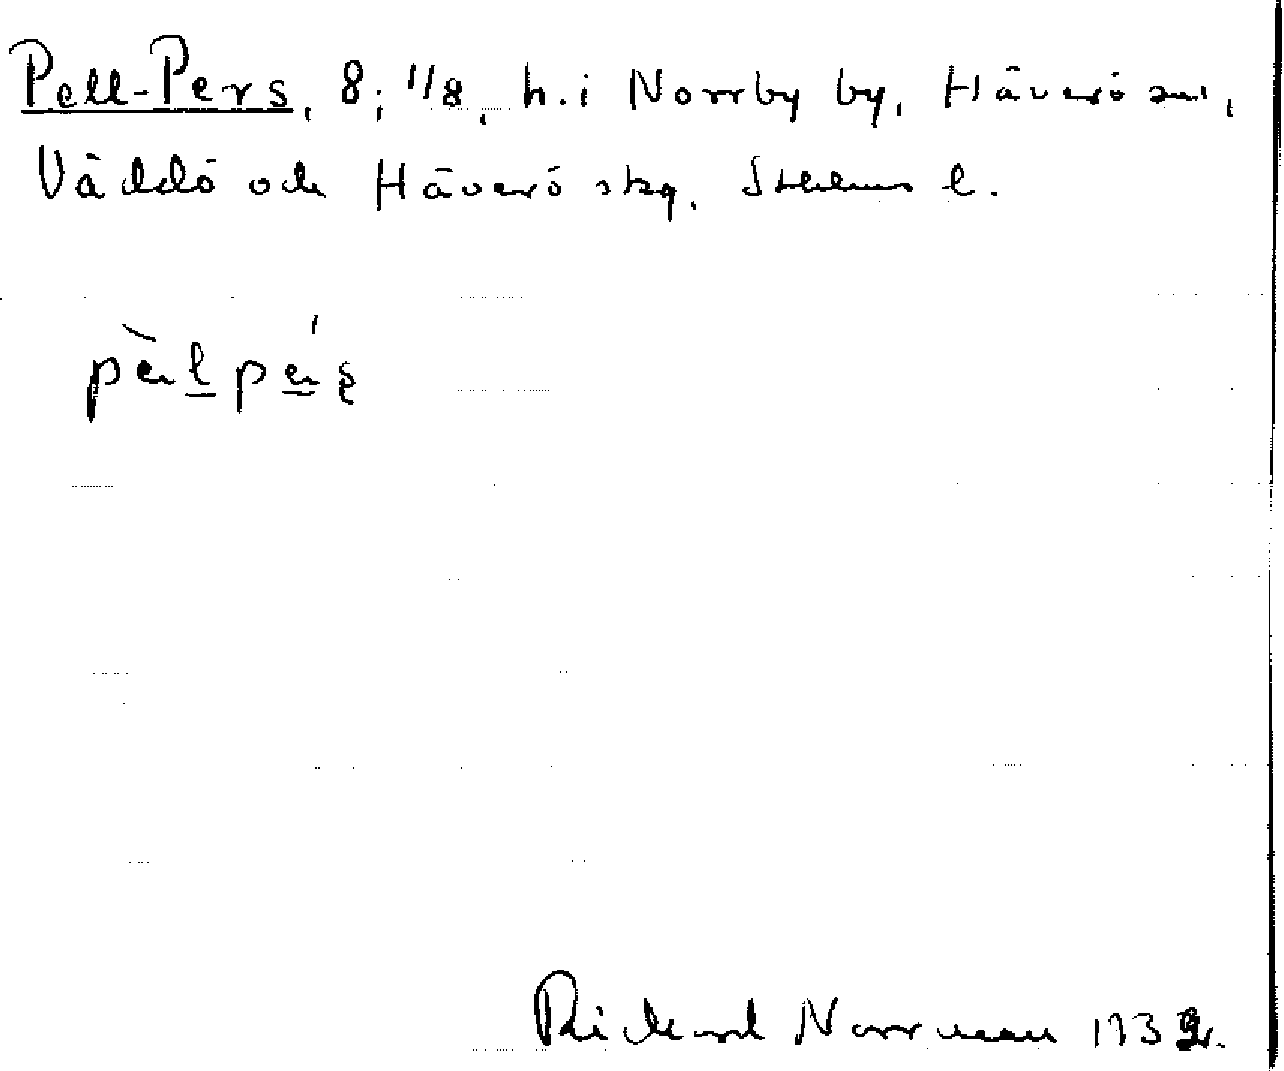 Pell-Pers, 8; 1/8, h. i Norrby by, Häverö sn,
Väddö och Häverö skg. Sthlms l.
pèlpés
Rickard Norrman 193